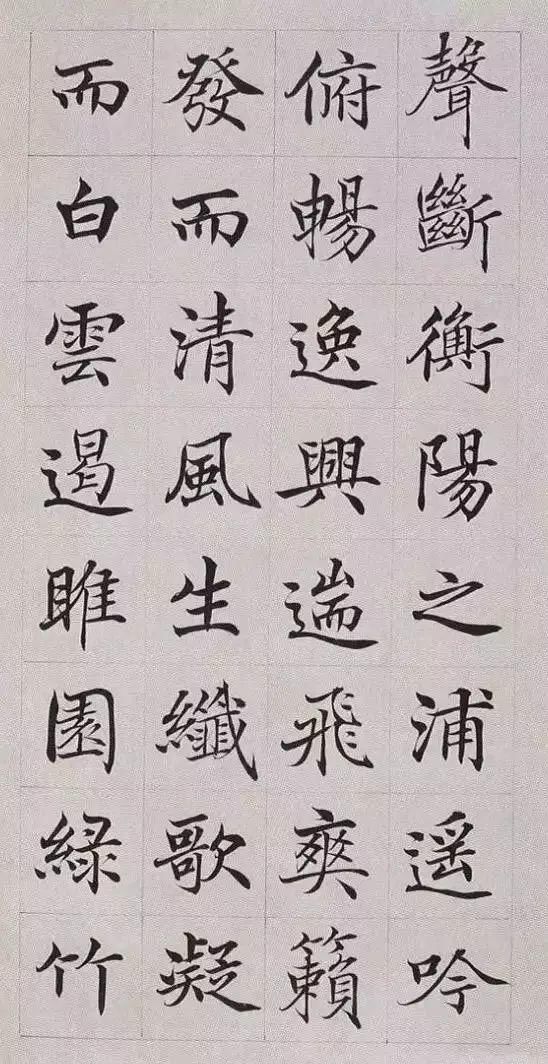 聲斷衡陽之浦遥吟
俯暢逸興遄飛爽籟
發而清風生纖歌凝
而白雲遏睢園緑竹